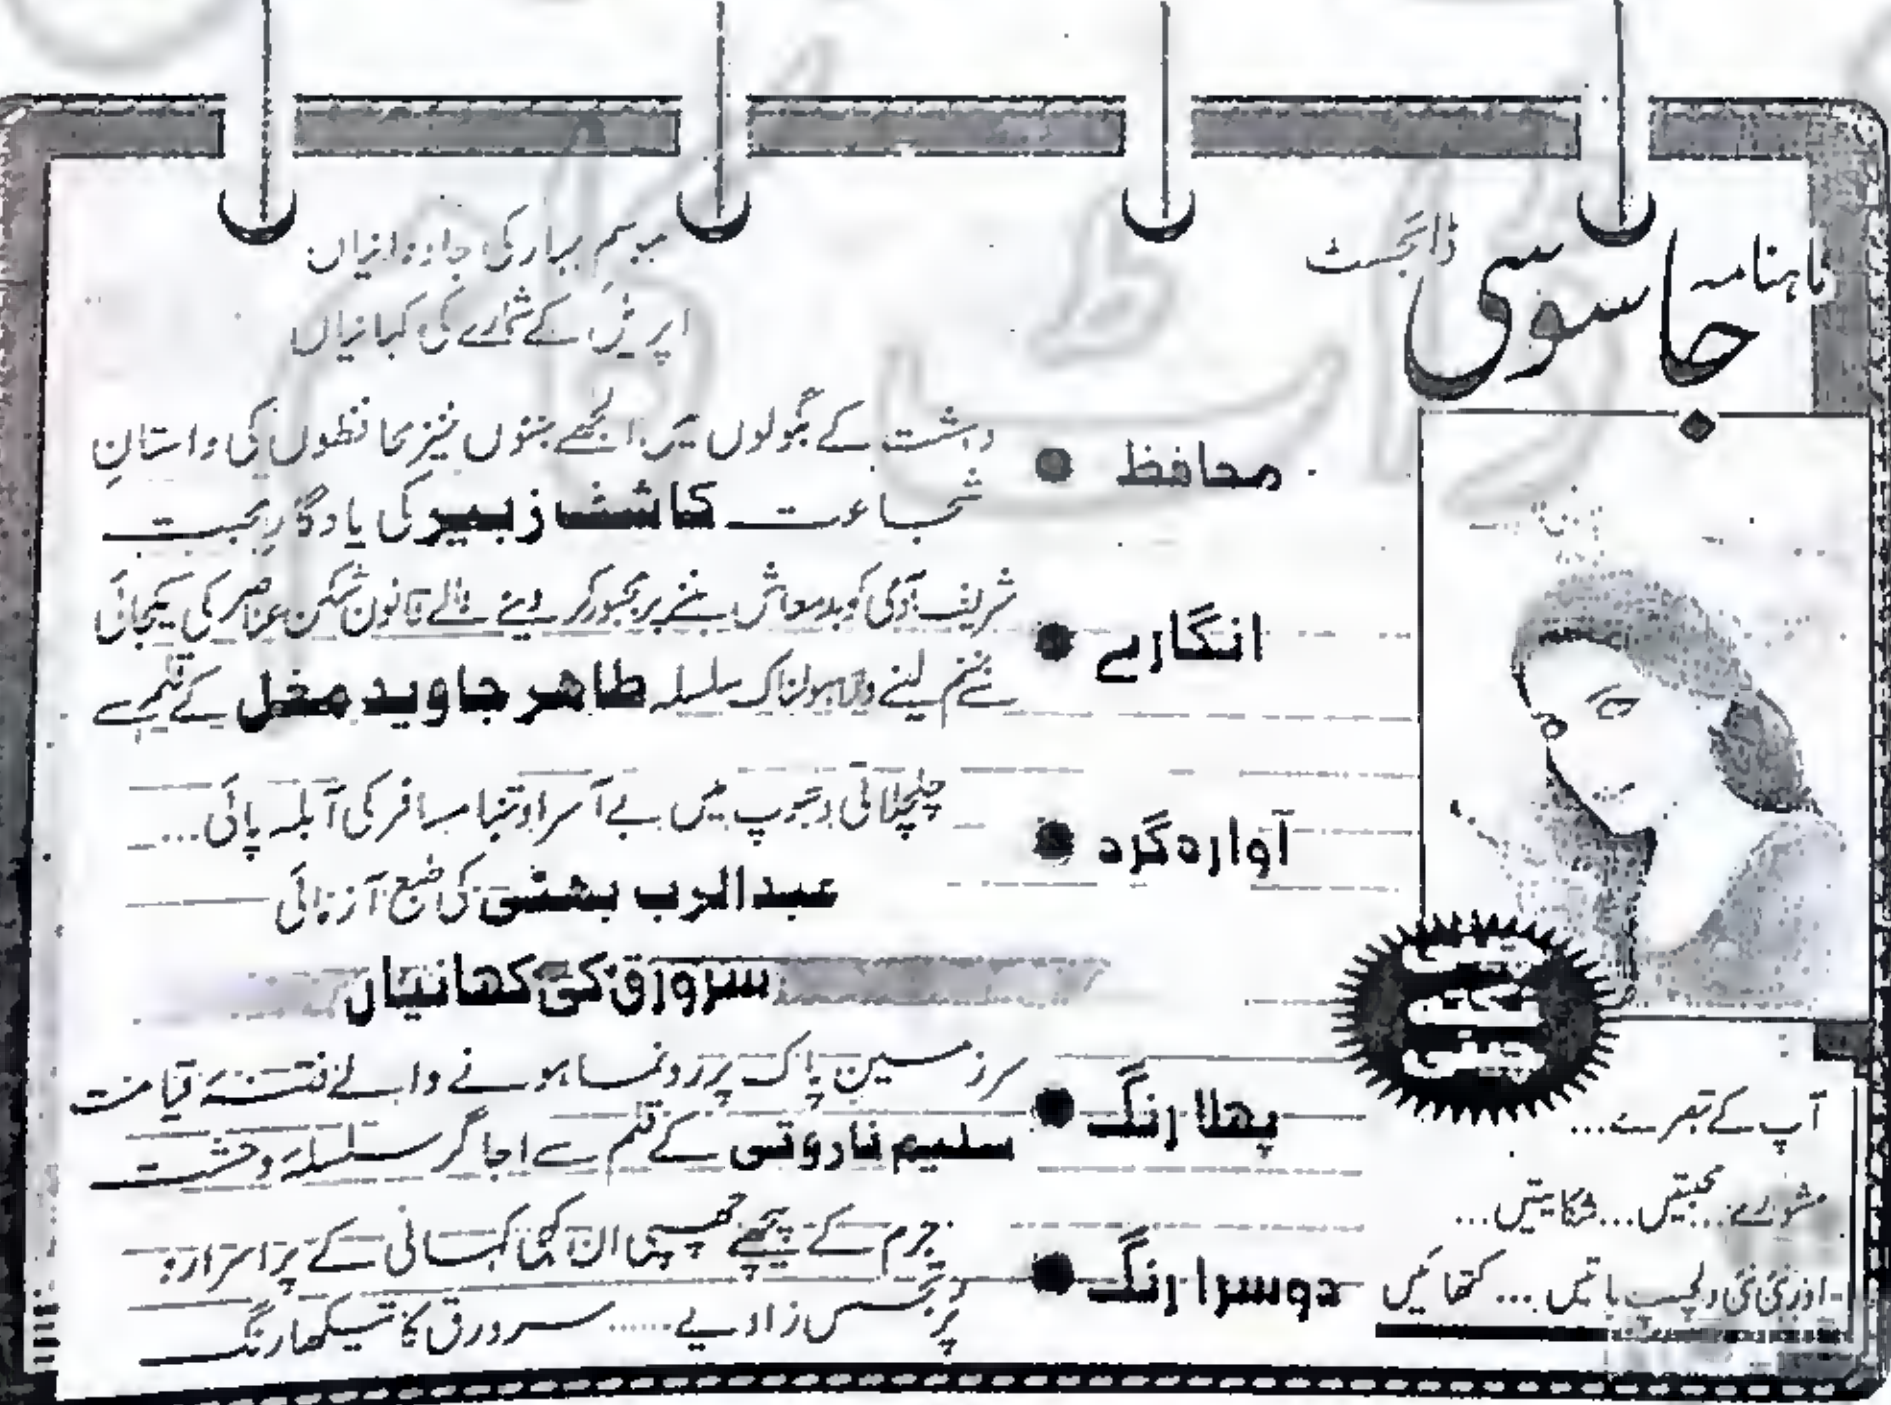 ماہنامہ جاسوسی ڈائجسٹ
موسمِ بہار کی جاودانیاں
اپریل کے شمارے کی کہانیاں
محافظ
دہشت کے بگولوں میں الجھے جنوں خیز محافظوں کی داستانِ
شجاعت کاشف زبیر کی یادگارِ محبت
انگارے
شریف آدمی کو بدمعاش بننے پر مجبور کر دینے والے قانون شکن عناصر کی یکجائی
سے جنم لینے والا ہولناک سلسلہ طاہر جاوید مغل کے قلم سے
آوارہ گرد
چلچلاتی دھوپ میں بے آسرا و تنہا مسافر کی آبلہ پائی...
عبدالرب بھٹی کی طبع آزمائی
سرورق کی کہانیاں
پہلا رنگ
سرزمین پاک پر رونما ہونے والے فتنۂ قیامت
سلیم فاروقی کے قلم سے اجاگر سلسلۂ وحشت
دوسرا رنگ
جرم کے پیچھے چھپی ان کہی کہانی کے پراسرار و
پُرتجسس زاویے...... سرورق کا تیکھا رنگ
چینی
نکتہ
چینی
آپ کے تبصرے...
مشورے... محبتیں... شکایتیں...
اور نئی نئی دلچسپ باتیں... کتھائیں